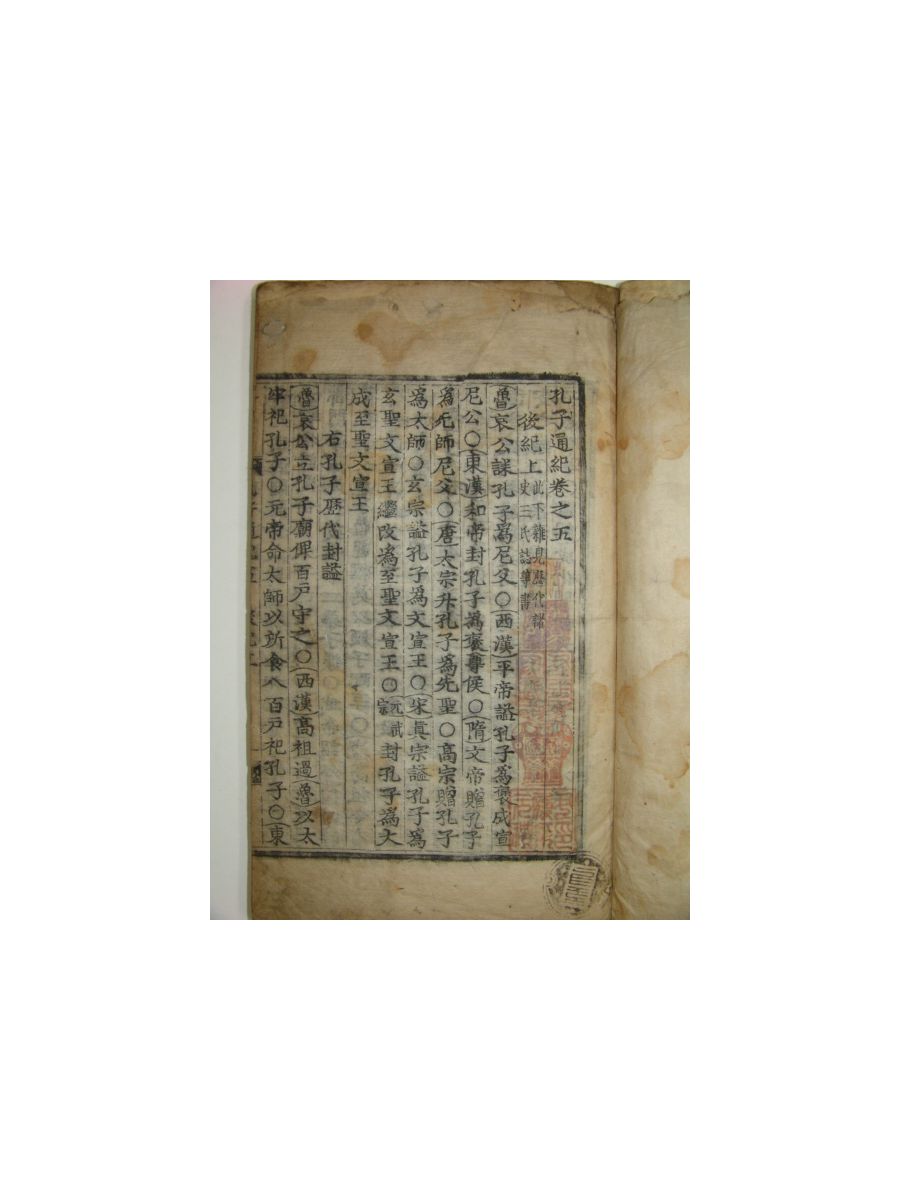 孔子通紀卷之五
後紀上 此下雜見歷代諸史三氏誌等書
魯哀公誄孔子爲尼父○西漢平帝謚孔子爲褒成宣
尼公○東漢和帝封孔子爲褒尊侯○隋文帝贈孔子
爲先師尼父○唐太宗升孔子爲先聖○高宗贈孔子
爲太師○玄宗謚孔子爲文宣王○宋眞宗謚孔子爲
玄聖文宣王繼改爲至聖文宣王○元武宗封孔子為大
成至聖文宣王
右孔子歷代封謚
魯哀公立孔子廟俾百戸守之○西漢高祖過魯以太
牢祀孔子○元帝命太師以所食八百戸祀孔子○東